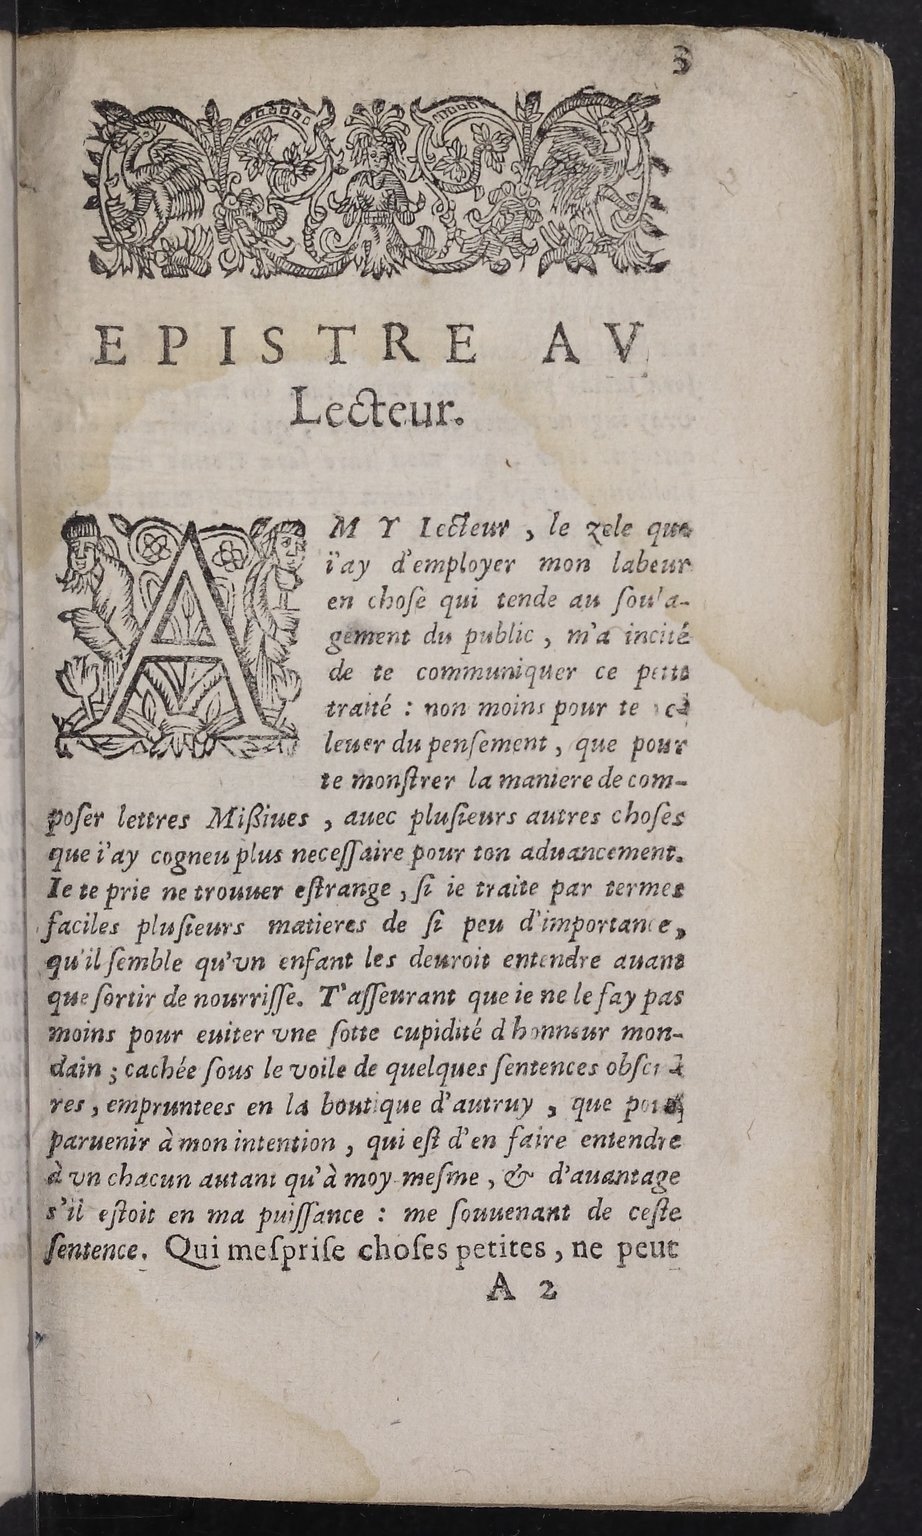 3
EPISTRE AV
Lecteur.
AMY Lecteur, le zele que
i'ay d'employer mon labeur
en choſe qui tende au ſoula-
gement du public, m'a incité
de te communiquer ce petit
traité : non moins pour te
leuer du penſement, que pour
te monſtrer la maniere de com-
poſer lettres Miſsiues, auec pluſieurs autres choſes
que i'ay cogneu plus neceſſaire pour ton aduancement.
Ie te prie ne trouuer eſtrange, ſi ie traite par termes
faciles pluſieurs matieres de ſi peu d'importance,
qu'il ſemble qu'vn enfant les deuroit entendre auant
que ſortir de nourriſſe. T'aſſeurant que ie ne le fay pas
moins pour euiter vne ſotte cupidité d'honneur mon-
dain ; cachée ſous le voile de quelques ſentences obſcu-
res, empruntees en la boutique d'autruy, que pour
paruenir à mon intention, qui eſt d'en faire entendre
à vn chacun autant qu'à moy-meſme, & d'auantage
s'il eſtoit en ma puiſſance : me ſouuenant de ceſte
ſentence. Qui meſpriſe choſes petites, ne peut
A 2